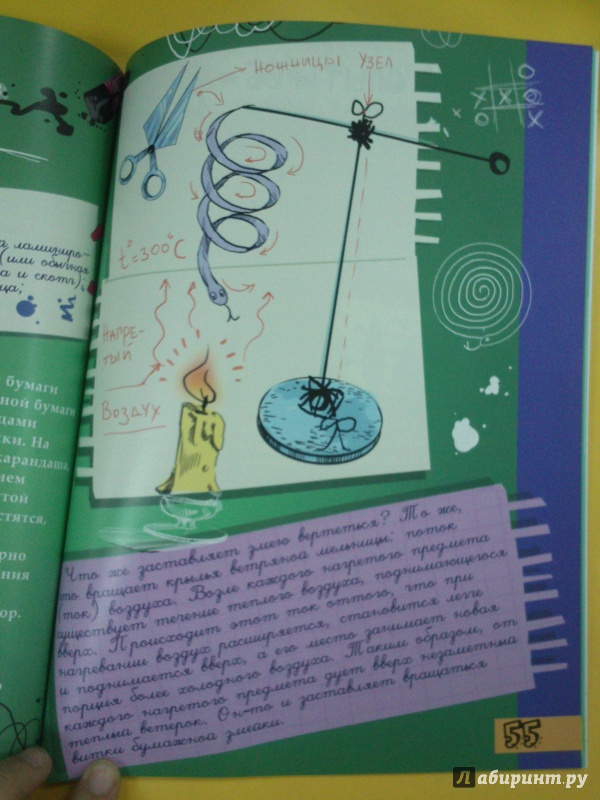 а ламиниро-
(или обычная
а и скотч);
ца;
бумаги
ной бумаги
цами
ки. На
карандаша,
ием
стой
стятся,
рно
ния
ор.
НОЖНИЦЫ УЗЕЛ
t°=300°C
НАГРЕ-
ТЫЙ
ВОЗДУХ
Что же заставляет змею вертеться? То же,
что вращает крылья ветряной мельницы: поток
(ток) воздуха. Возле каждого нагретого предмета
существует течение теплого воздуха, поднимающегося
вверх. Происходит этот ток оттого, что при
нагревании воздух расширяется, становится легче
и поднимается вверх, а его место занимает новая
порция более холодного воздуха. Таким образом, от
каждого нагретого предмета дует вверх незаметный
теплый ветерок. Он-то и заставляет вращаться
витки бумажной змейки.
55
Лабиринт.ру